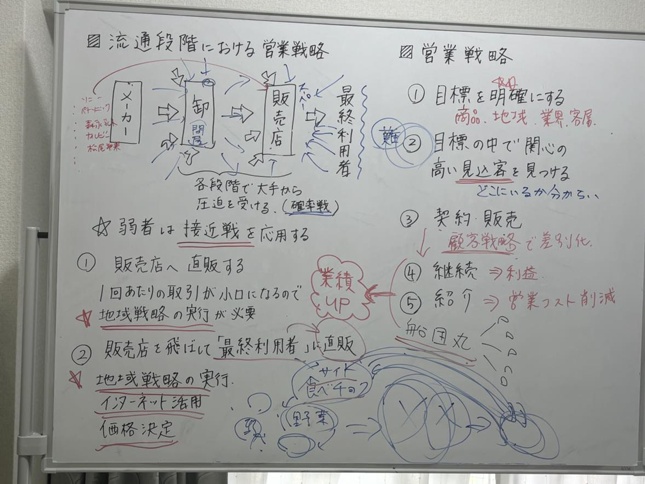 流通段階における営業戦略
メーカー
卸
問屋
販売店
最終利用者
各段階で大手から
圧迫を受ける。(確率戦)
☆ 弱者は接近戦を応用する
① 販売店へ直販する
1回あたりの取引が小口になるので
☆ 地域戦略の実行が必要
② 販売店を飛ばして「最終利用者」に直販
☆ 地域戦略の実行.
インターネット活用
価格決定
サイト
食べチョク
野菜
業績
UP
営業戦略
① 目標を明確にする
商品、地域、業界、客層、
難
② 目標の中で関心の
高い見込客を見つける
どこにいるか分からない
③ 契約・販売
顧客戦略で差別化
④ 継続 ⇒ 利益
⑤ 紹介 ⇒ 営業コスト削減